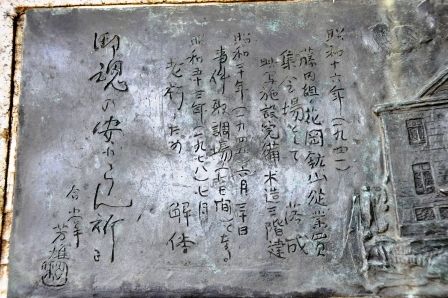 昭和十六年(一九四一)
藤田組の花岡鉱山従業員
集会場として 落成
施設完備 木造三階建
昭和二十年(一九四五)六月三十日
事件の取調場(七日間)となる
昭和五十三年(一九七八)七月
老朽のため 解体
御魂の安からん祈る
合掌
芳雄